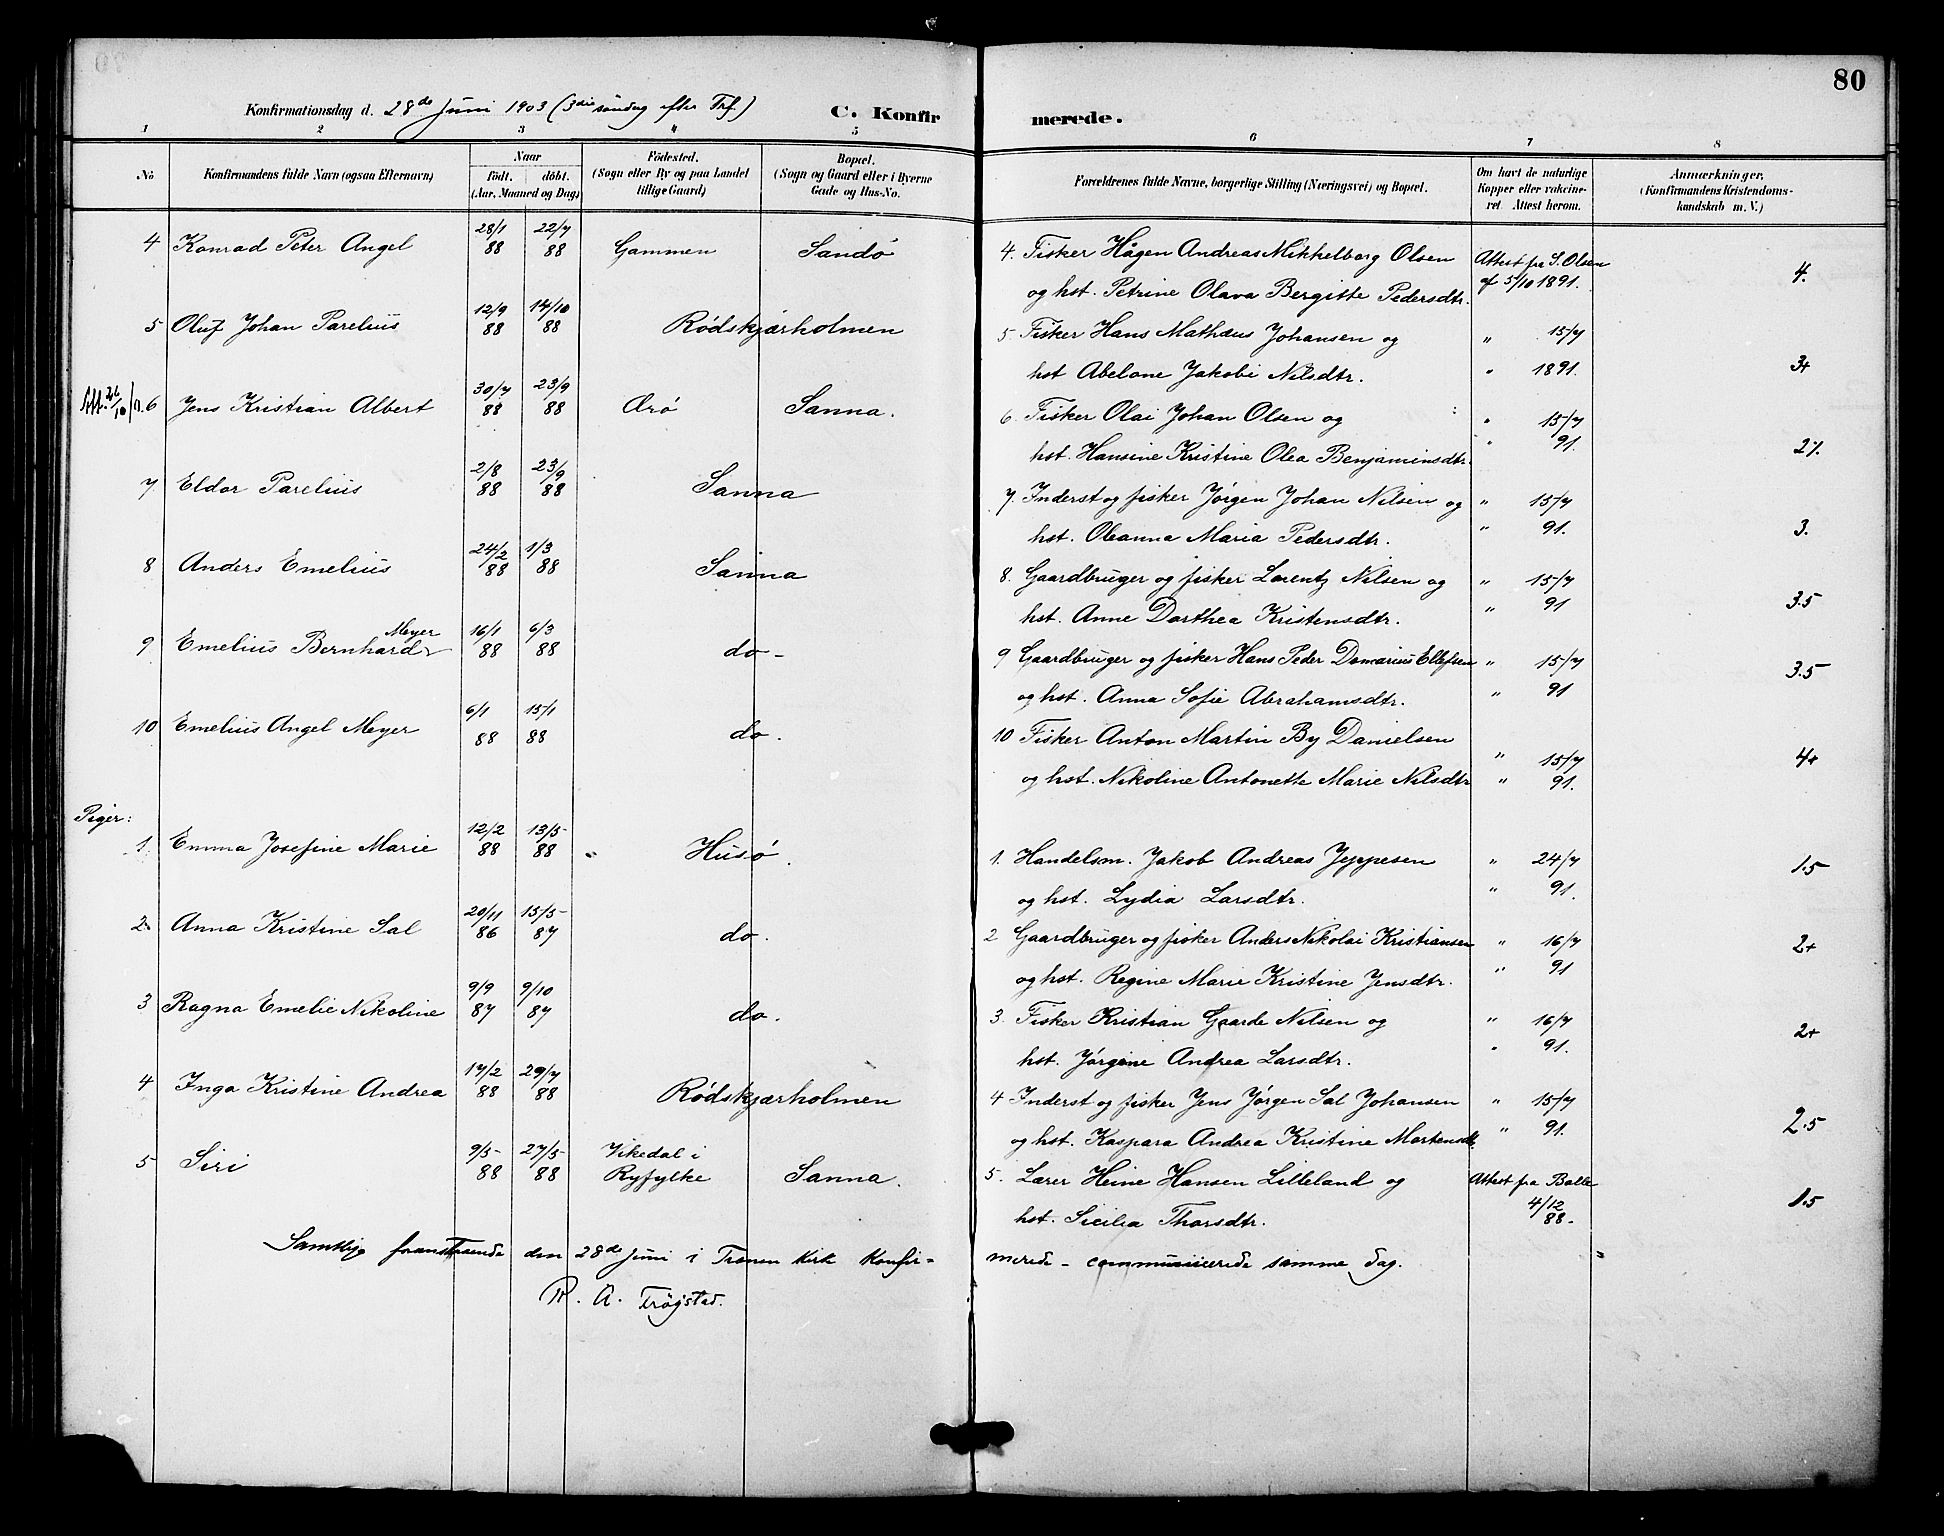 80
Konfirmationsdag d. 28de Juni 1903 (3die søndag efter Trf.) C. Konfirmerede.
1 2 3 4 5 6 7 8
No Konfirmandens fulde Navn (ogsaa Efternavn) Naar födt. döbt. (Aar, Maaned og Dag) Födested. (Sogn eller By og paa Landet tillige Gaard) Bopæl. (Sogn og Gaard eller i Byerne Gade og Hus-No. Forældrenes fulde Navne, borgerlige Stilling (Næringsvei) og Bopæl. Om havt de naturlige Kopper eller vakcineret. Attest herom. Anmærkninger. (Konfirmandens Kristendomskundskab m. V.)
4 Konrad Peter Angel 28/1 88 22/7 88 Gammen Sandö 4. Fisker Hågen Andreas Mikkelborg Olsen Attest fra S. Olsen
og hst. Petrine Olava Bergitte Pedersdtr. af 5/10 1891. 4.
5 Oluf Johan Parelius 12/9 88 14/10 88 Rödskjærholmen 5. Fisker Hans Mathæus Johansen og " 15/7
hst Abelone Jakobi Nilsdtr. " 1891. 3+
Att. 26/10 6 Jens Kristian Albert 30/7 88 23/9 88 Ærö Sanna. 6. Fisker Olai Johan Olsen og " 15/7
hst. Hansine Kristine Olea Benjaminsdtr. " 91. 2%
7. Eldor Parelius 2/8 88 23/9 88 Sanna 7. Inderst og fisker Jörgen Johan Nilsen og " 15/7
hst. Oleanna Maria Pedersdtr. " 91. 3.
8 Anders Emelius 24/2 88 1/3 88 Sanna 8. Gaardbruger og fisker Lorentz Nilsen og " 15/7
hst. Anne Dorthea Kristensdtr. " 91 3.5
9 Emelius Bernhard Meyer 16/1 88 6/3 88 do - 9 Gaardbruger og fisker Hans Peder Domarius Ellefsen " 15/7
og hst. Anna Sofie Abrahamsdtr. " 91 3.5
10 Emelius Angel Meyer 6/1 88 15/1 88 do. 10 Fisker Anton Martin By Danielsen
og hst. Nikoline Antonette Marie Nilsdtr " 15/7 " 91. 4+
Piger:
1 Emma Josefine Marie 12/2 88 13/5 88 " Husö. 1. Handelsm. Jakob Andreas Jeppesen " 24/7
og hst. Lydia Larsdtr. " 91. 1.5
2. Anna Kristine Sal 20/11 86 15/5 87 do. 2 Gaardbruger og fisker Anders Nikolai Kristiansen " 16/7
og hst. Regine Marie Kristine Jensdtr. " 91 2+
3 Ragna Emelie Nikoline 9/9 87 9/10 87 do. 3. Fisker Kristian Gaarde Nilsen og " 16/7
hst. Jörgine Andrea Larsdtr. " 91. 2+
4 Inga Kristine Andrea 17/2 88 29/7 88 Rödskjærholmen 4 Inderst og fisker Jens Jörgen Sal Johansen " 15/7
og hst. Kaspara Andrea Kristine Mortensdt. " 91. 2.5
5 Siri 9/5 88 27/5 88 Vikedal i Ryfylke Sanna. 5. Lærer Heine Hansen Lilleland og Attest fra Balle
hst. Sicilia Thorsdtr. 4/12 88 - 1.5
Samtlige foranstaaende den 28de Juni i Trænen Kirke Konfirmerede - communicerede samme Dag.
R. A. Trøgstad.